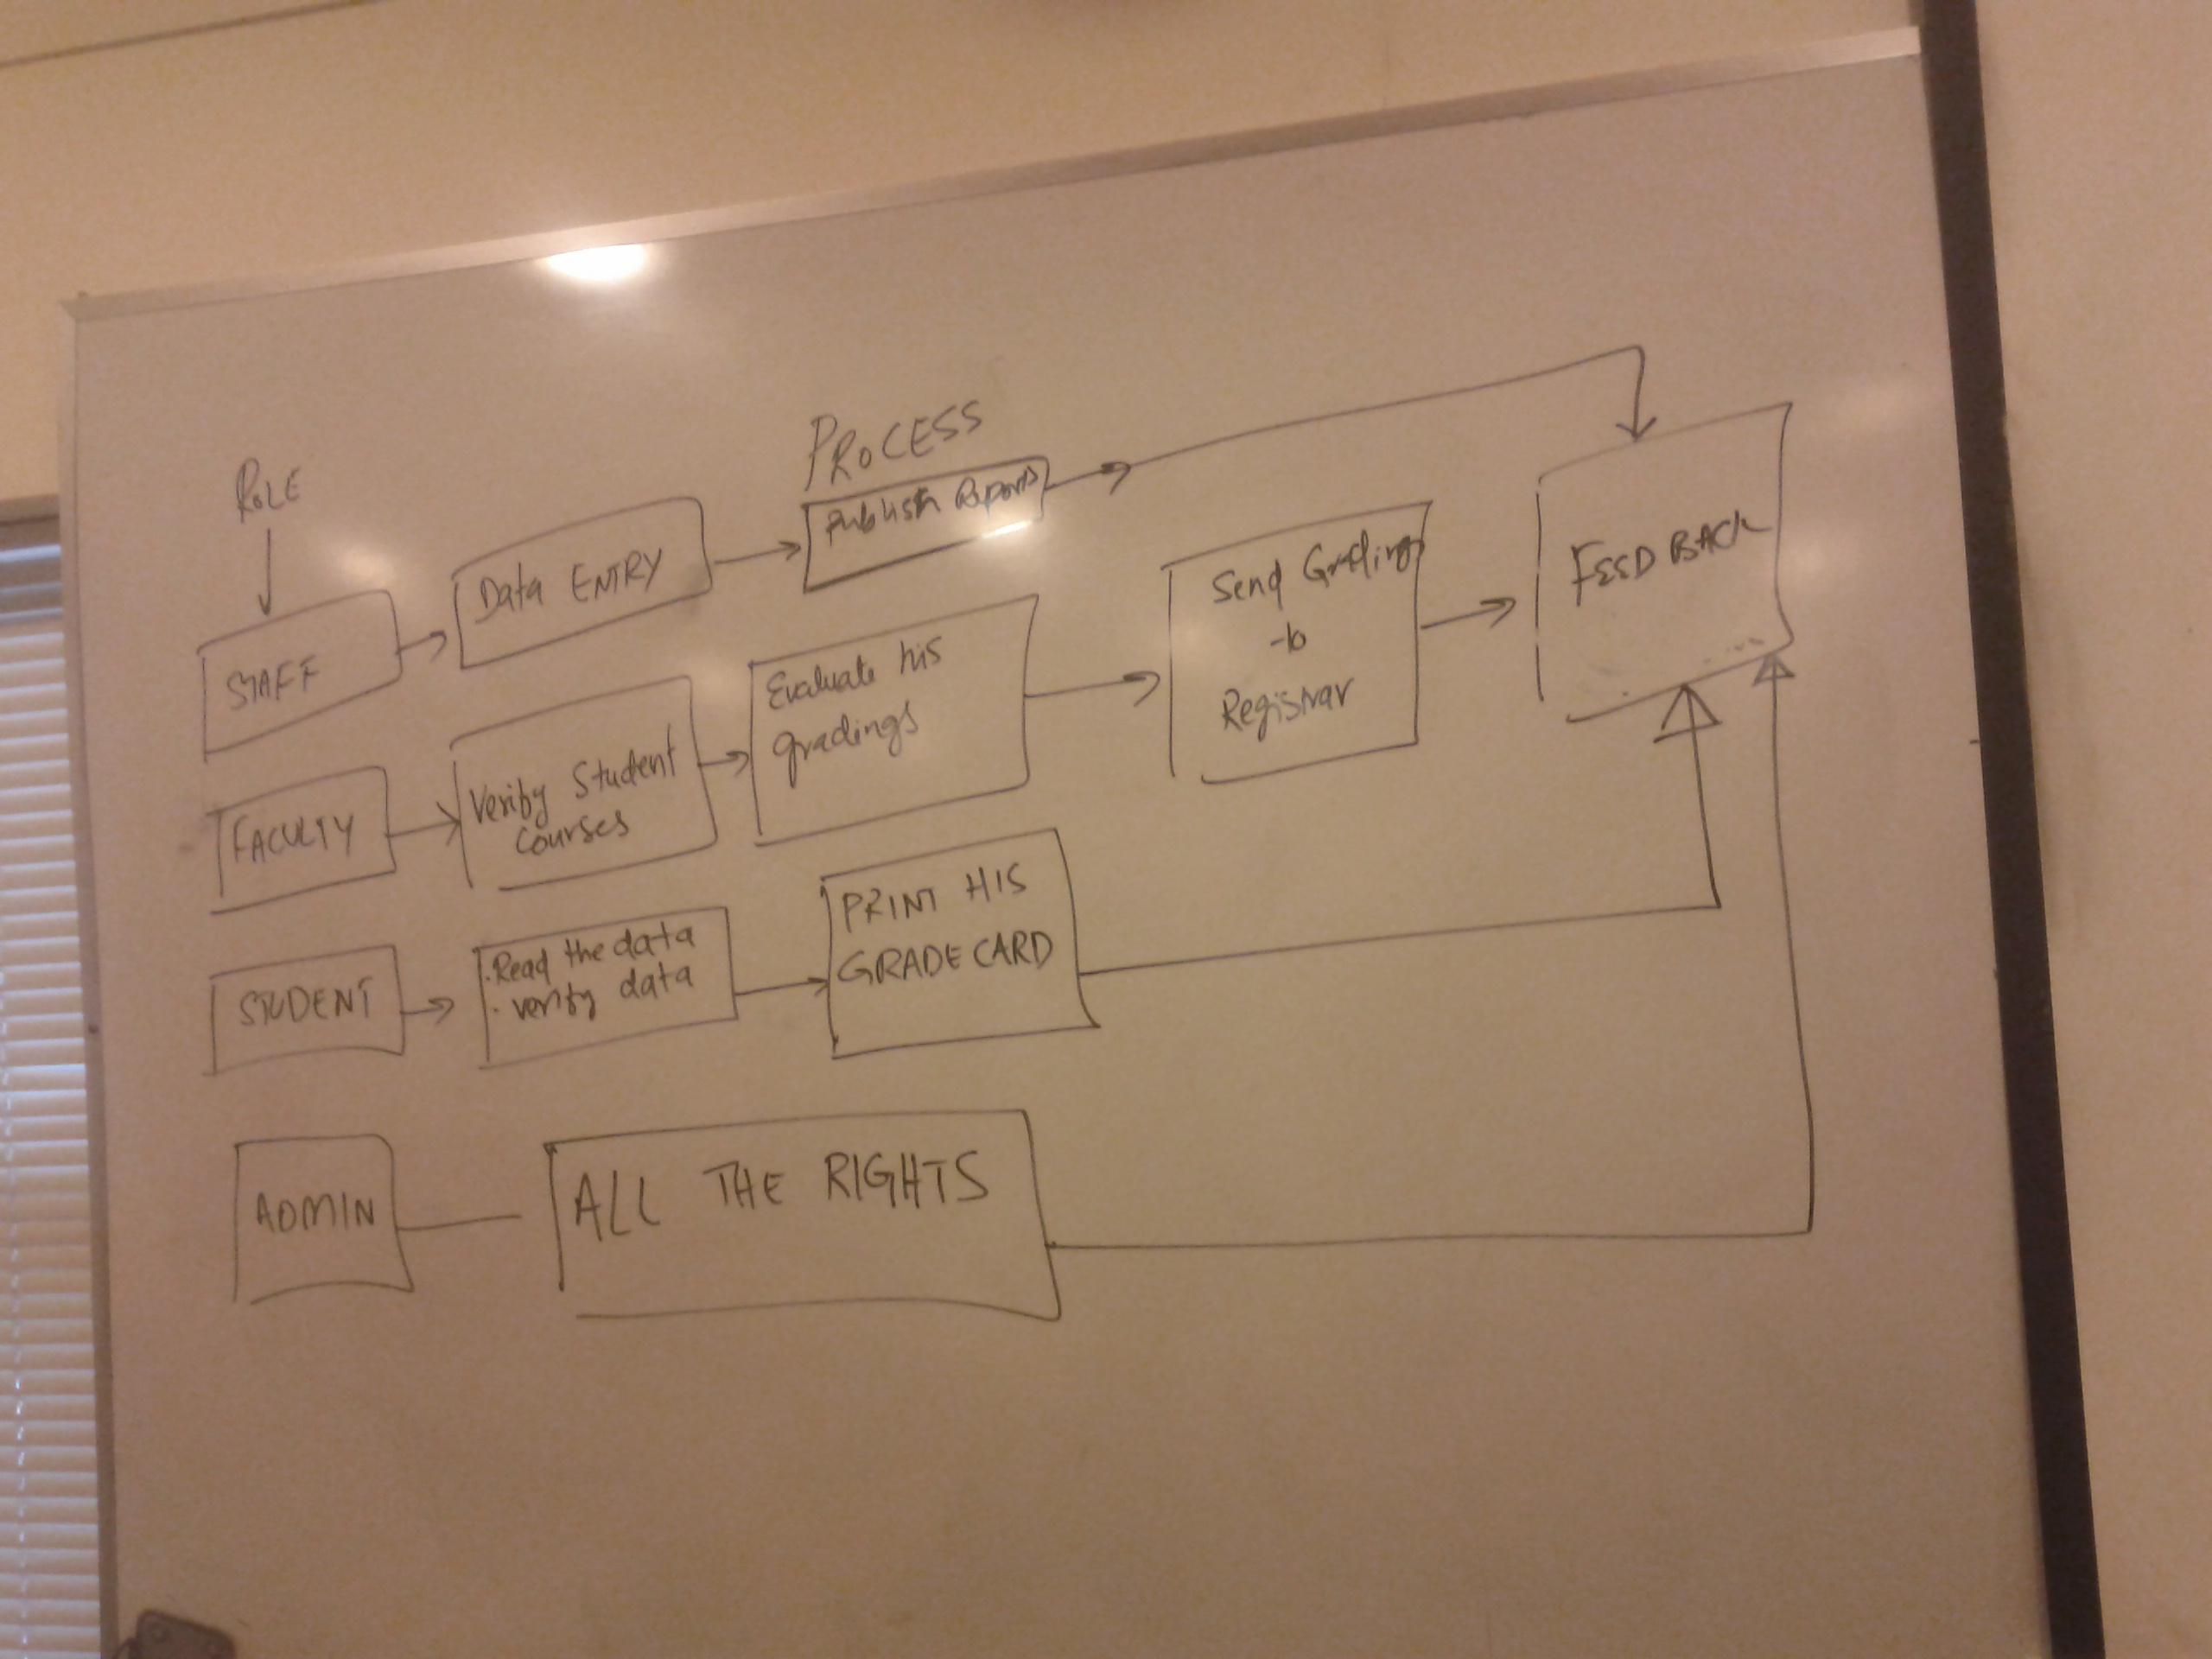 ROLE
PROCESS
STAFF
Data ENTRY
Publish Reports
FEEDBACK
FACULTY
Verify Student
Courses
Evaluate his
gradings
Send Grading
to
Registrar
STUDENT
· Read the data
· verify data
PRINT HIS
GRADE CARD
ADMIN
ALL THE RIGHTS